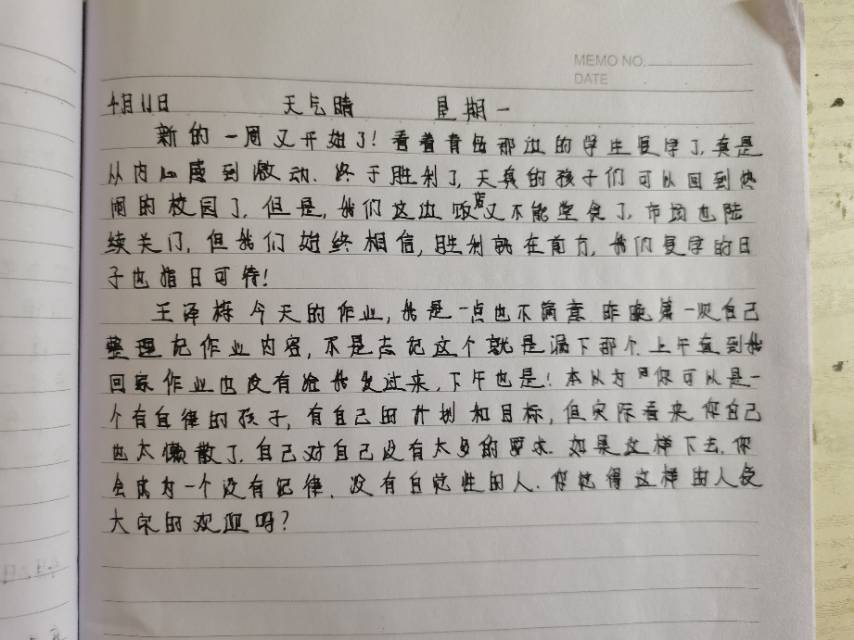 MEMO NO.
DATE
4月11日 天气晴 星期一
新的一周又开始了!看着青岛那边的学生复学了,真是
从内心感到激动.终于胜利了,天真的孩子们可以回到热
闹的校园了,但是,我们这边饭店又不能堂食了,市场也陆
续关门,但我们始终相信,胜利就在前方,我们复学的日
子也指日可待!
王泽栋今天的作业,我是一点也不满意 昨晚第一次自己
整理记作业内容,不是忘记这个就是漏下那个.上午直到我
回家作业也没有给我发过来,下午也是!本以为 你可以是一
个有自律的孩子,有自己的计划和目标,但实际看来 你自己
也太懒散了.自己对自己没有太多的要求.如果这样下去.你
会成为一个没有纪律、没有自觉性的人.你觉得这样的人受
大家的欢迎吗?